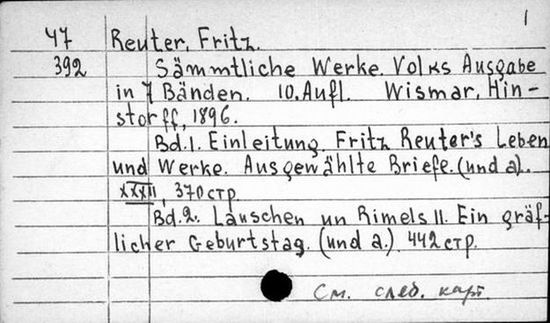 1
47 Reuter, Fritz.
392 Sämmtliche Werke. Volks Ausgabe
in 7 Bänden. 10. Aufl. Wismar, Hin-
storff, 1896.
Bd.1. Einleitung. Fritz Reuter's Leben
und Werke. Ausgewählte Briefe. (und a).
XXXII, 370 стр.
Bd.2. Läuschen un Rimels II. Ein gräf-
licher Geburtstag. (und a.) 442 стр.
См. след. карт.